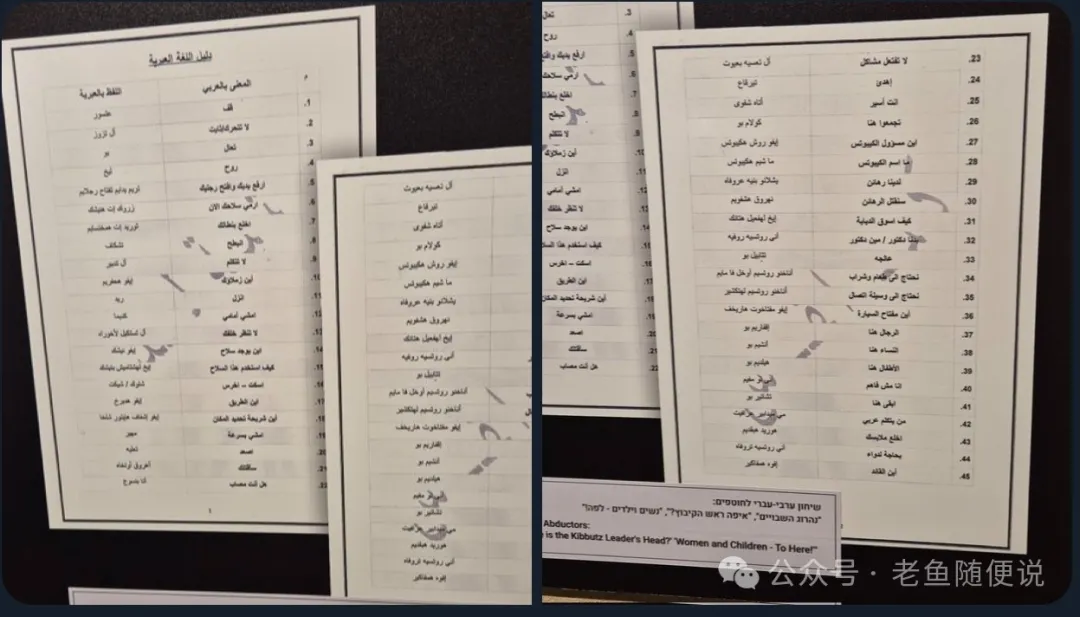 دليل اللغة العبرية
م المعنى بالعربي اللفظ بالعبرية
1. قف عتسور
2. لا تتحرك/إثبت آل تزوز
3. تعال بو
4. روح ليخ
5. ارفع يديك وافتح رجليك تريم يدايم تفتاح رجلايم
6. ارمي سلاحك الآن زروك إت هنيشك
7. اخلع بنطالك
8. انبطح تشكاف
9. لا تتكلم آل تدبير
10. أين زملاؤك إيفو حفريم
11. انزل ريد
12. امشي أمامي كديما
13. لا تنظر خلفك آل تستاكيل لأحوراه
14. اين يوجد سلاح إيفو نيشك
15. كيف استخدم هذا السلاح
16. اسكت – اخرس شتوك / شيكت
17. اين الطريق إيفو هديرخ
18. أين شريحة تحديد المكان
19. امشي بسرعة مهير
20. اصعد تعليه
21. ساقتلك
22. هل أنت مصاب
1
آل تعسيه بعيوت
تيرقاع
أتاه شفوي
كولام بو
إيفو روش هكيبوتس
ما شيم هكيبوتس
يشلانو بنيه عروفاه
نهروق هشفويم
إيخ لهفعيل هتانك
أني روتسيه روفيه
تتابيل بو
أناحنو روتسيم أوخل فا مايم
أناحنو روتسيم لهتكشير
إيفو مفتاخوت هاريخف
إقفاريم بو
أنشيم بو
هيلديم بو
أني لو مفيم
تشائير بو
مي مدابير عرفيت
هوريد هبقديم
أني روتسيه تروفاه
إيفوه همفاكير
3.
4. تعال
5. روح
6. ارفع يديك وافتح
7. ارمي سلاحك
8. اخلع بنطالك
9. انبطح
10. لا تتكلم
11. أين زملاؤك
12. انزل
13. امشي أمامي
14. لا تنظر خلفك
15. اين يوجد سلاح
16. كيف استخدم هذا السلا
17. اسكت – اخرس
18. اين الطريق
19. أين شريحة تحديد المكان
20. امشي بسرعة
21. اصعد
22. ساقتلك
هل أنت مصاب
23. لا تفتعل مشاكل آل تعسيه بعيوت
24. إهدئ تيرقاع
25. انت أسير أتاه شفوي
26. تجمعوا هنا كولام بو
27. اين مسؤول الكيبوتس إيفو روش هكيبوتس
28. ما اسم الكيبوتس ما شيم هكيبوتس
29. لدينا رهائن يشلانو بنيه عروفاه
30. سنقتل الرهائن نهروق هشفويم
31. كيف اسوق الدبابة إيخ لهفعيل هتانك
32. بدنا دكتور / مين دكتور أني روتسيه روفيه
33. عالجه تتابيل بو
34. نحتاج الى طعام وشراب أناحنو روتسيم أوخل فا مايم
35. نحتاج الى وسيلة اتصال أناحنو روتسيم لهتكشير
36. أين مفتاح السيارة إيفو مفتاخوت هاريخف
37. الرجال هنا إقفاريم بو
38. النساء هنا أنشيم بو
39. الأطفال هنا هيلديم بو
40. انا مش فاهم أني لو مفيم
41. ابقى هنا تشائير بو
42. من يتكلم عربي مي مدابير عرفيت
43. اخلع ملابسك هوريد هبقديم
44. بحاجة لدواء أني روتسيه تروفاه
45. اين القائد إيفوه همفاكير
שיחון ערבי-עברי לחוטפים:
"נהרוג השבויים", "איפה ראש הקיבוץ?", "נשים וילדים - לפה!"
Abductors:
e is the Kibbutz Leader's Head?' "Women and Children - To Here!"
公众号 · 老鱼随便说